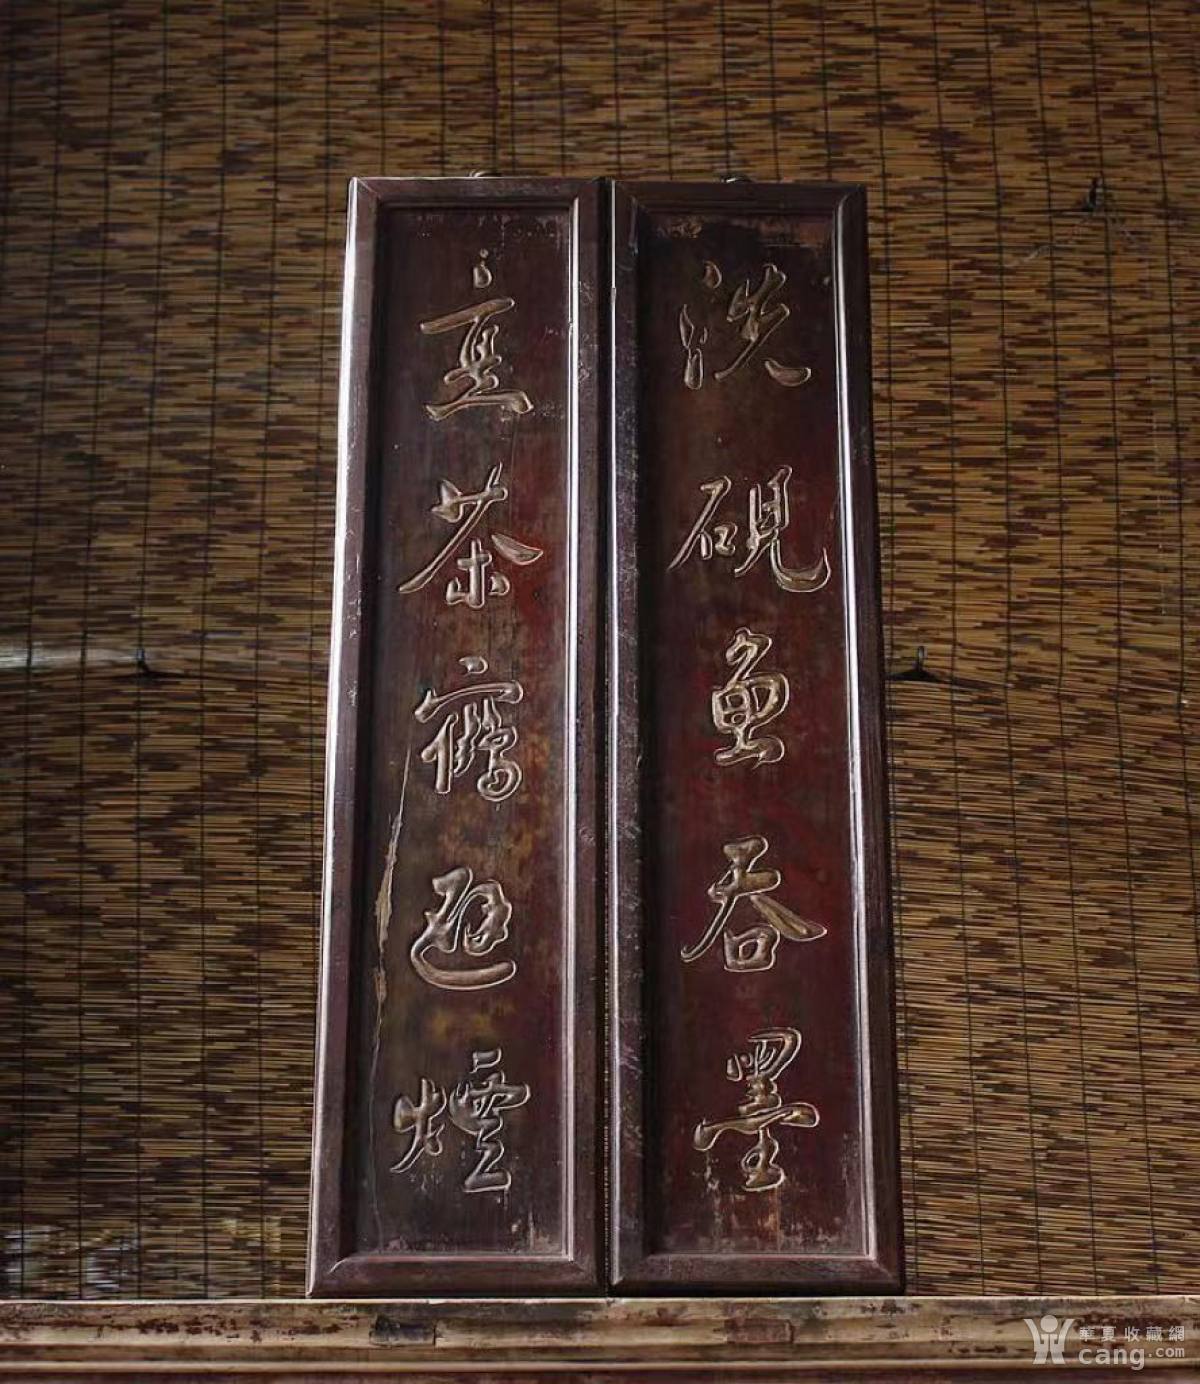 洗硯魚吞墨
烹茶鶴避煙
華夏收藏網
cang.com